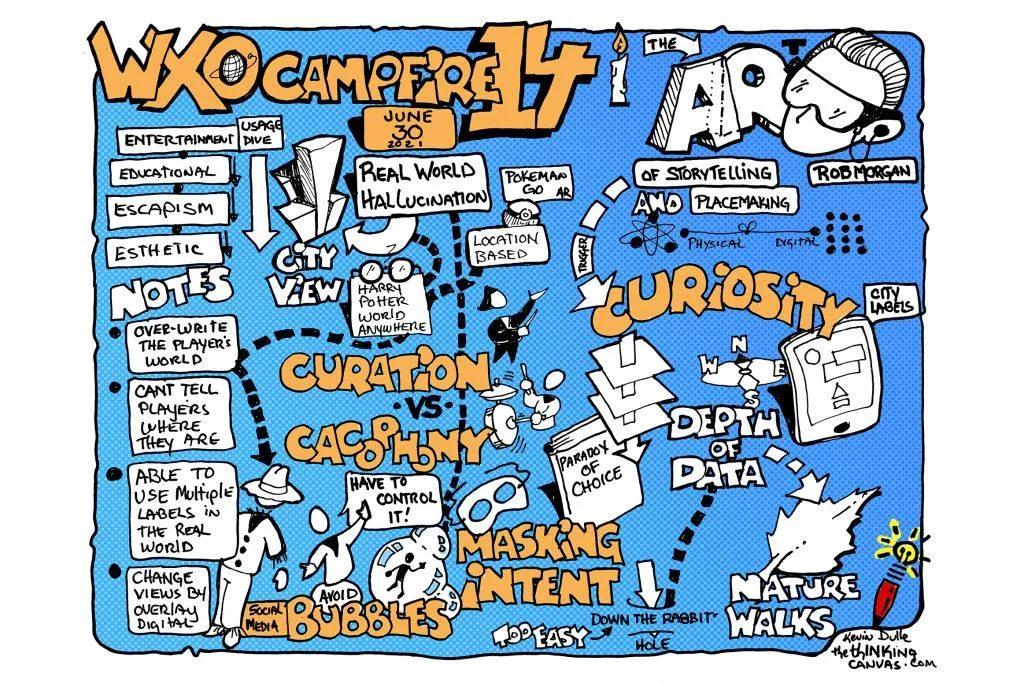 WXO CAMPFIRE 14
JUNE
30
2021
THE
ART
OF STORYTELLING
AND PLACEMAKING
ROB MORGAN
PHYSICAL DIGITAL
ENTERTAINMENT
USAGE
DIVE
EDUCATIONAL
ESCAPISM
ESTHETIC
CITY
VIEW
REAL WORLD
HALLUCINATION
POKEMAN
GO AR
LOCATION
BASED
TRIGGER
CURIOSITY
CITY
LABELS
NOTES
OVER-WRITE
THE PLAYER'S
WORLD
CANT TELL
PLAYERS
WHERE
THEY ARE
ABLE TO
USE MULTIPLE
LABELS IN
THE REAL
WORLD
CHANGE
VIEWS BY
OVERLAY
DIGITAL
HARRY
POTTER
WORLD
ANYWHERE
CURATION
VS
CACOPHONY
N
W E
S
DEPTH
OF
DATA
PARADOX
OF
CHOICE
HAVE TO
CONTROL
IT!
AVOID
SOCIAL
MEDIA
BUBBLES
MASKING
INTENT
TOO EASY
DOWN THE RABBIT
HOLE
NATURE
WALKS
Kevin Dulle
the thINKing
CANVAS.com